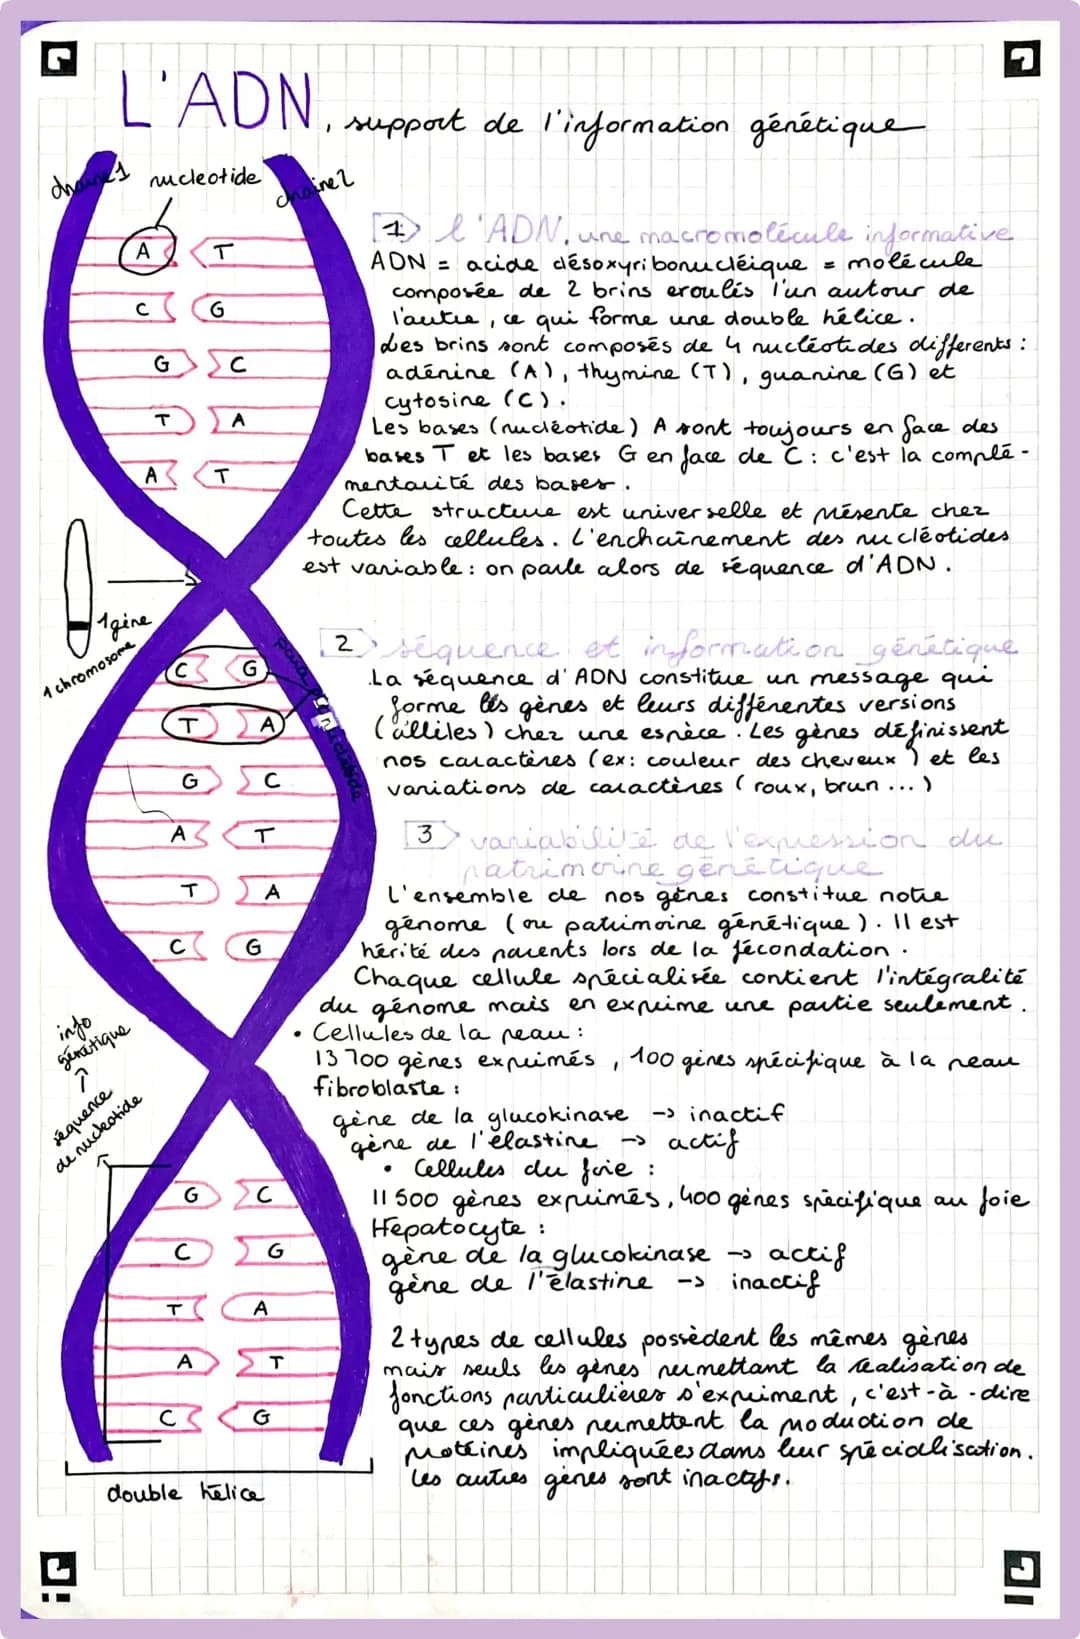 L'ADN, support de l'information génétique
chaine 1
nucleotide
chaine 2
A T
C G
G C
T A
A T
1 gène
1 chromosome
C G
T A
G C
A T
T A
C G
info
génétique
séquence
de nucleotide
G C
C G
T A
A T
C G
double hélice
1 l'ADN, une macromolécule informative
ADN = acide désoxyribonucléique = molécule
composée de 2 brins eroulés l'un autour de
l'autre, ce qui forme une double hélice.
Les brins sont composés de 4 nucléotides differents :
adénine (A), thymine (T), guanine (G) et
cytosine (C).
Les bases (nucléotide) A sont toujours en face des
bases T et les bases G en face de C : c'est la complé-
mentarité des bases.
Cette structure est universelle et présente chez
toutes les cellules. L'enchaînement des nucléotides
est variable : on parle alors de séquence d'ADN.
2 séquence et information génétique
La séquence d'ADN constitue un message qui
forme les gènes et leurs différentes versions
(allèles) chez une espèce. Les gènes définissent
nos caractères (ex: couleur des cheveux) et les
variations de caractères (roux, brun ...)
3 variabilité de l'expression du
patrimoine génétique
L'ensemble de nos gènes constitue notre
génome (ou patrimoine génétique). Il est
hérité des parents lors de la fécondation.
Chaque cellule spécialisée contient l'intégralité
du génome mais en exprime une partie seulement.
• Cellules de la peau :
13 700 gènes exprimés, 100 gènes spécifique à la peau
fibroblaste :
gène de la glucokinase -> inactif
gène de l'élastine -> actif
• Cellules du foie :
11 500 gènes exprimés, 400 gènes spécifique au foie
Hépatocyte :
gène de la glucokinase -> actif
gène de l'élastine -> inactif
2 types de cellules possèdent les mêmes gènes
mais seuls les gènes permettant la réalisation de
fonctions particulières s'expriment, c'est-à-dire
que ces gènes permettent la production de
protéines impliquées dans leur spécialisation.
Les autres gènes sont inactifs.